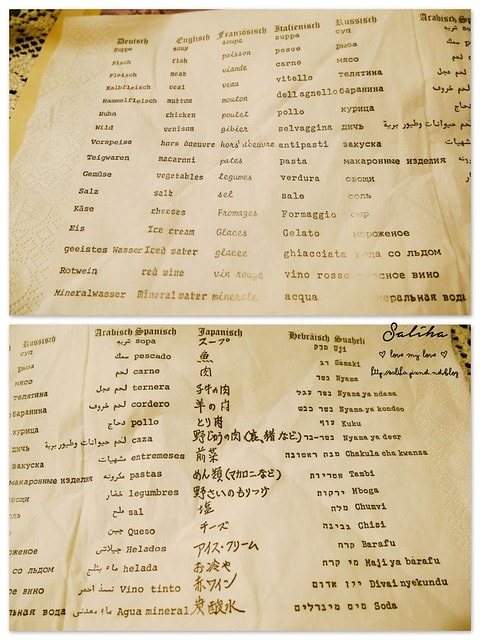 Deutsch Englisch Französisch Italienisch Russisch Arabisch
Suppe soup soupe suppa суп
Fisch fish poisson pesce рыба
Fleisch meat viande carne мясо
Kalbfleisch veal veau vitello телятина
Hammelfleisch mutton mouton dell agnello баранина
Huhn chicken poulet pollo курица
Wild venison gibier selvaggina дичь
Vorspeise hors d'oeuvre hors d'oeuvre antipasti закуска
Teigwaren macaroni pates pasta макаронные изделия
Gemüse vegetables legumes verdura овощи
Salz salt sel sale соль
Käse cheeses Fromages Formaggio сыр
Eis Ice cream Glaces Gelato мороженое
geeistes Wasser Iced water glacee ghiacciata со льдом
Rotwein red wine vin rouge vino rosso вино
Mineralwasser Mineral water minerale acqua
Russisch Arabisch Spanisch Japanisch Hebräisch Suaheli
суп شوربه スープ מרק Uji
سمك pescado 魚 דג Samaki
мясо لحم carne 肉 בשר Nyama
телятина لحم عجل ternera 子牛の肉 בשר עגל Nyama ya ndama
баранина لحم خروف cordero 羊の肉 בשר כבש Nyama ya kondoo
курица دجاج pollo とり肉 עוף Kuku
дичь لحم حيوانات وطيور برية caza 野じゅうの肉(鹿、猪など) בשר-בר Nyama ya deer
закуска شهيات entremeses 前菜 מנה ראשונה Chakula cha kwanza
макаронные изделия مكرونه pastas めん類(マカロニなど) אטריות Tambi
овощи خضار legumbres 野さいのもりつけ ירקות Mboga
соль ملح sal 塩 מלח Chumvi
جبن Queso チーズ גבינה Chisi
جيلاتي Helados アイス・クリーム קרח Barafu
со льдом ماء بثلج helada お冷や מי קרח Maji ya barafu
вино نبيذ احمر Vino tinto 赤ワイン יין אדום Divai nyekundu
вода ماء معدني Agua mineral 炭酸水 מים מינרלים Soda
Saliha
♡ love my love ♡